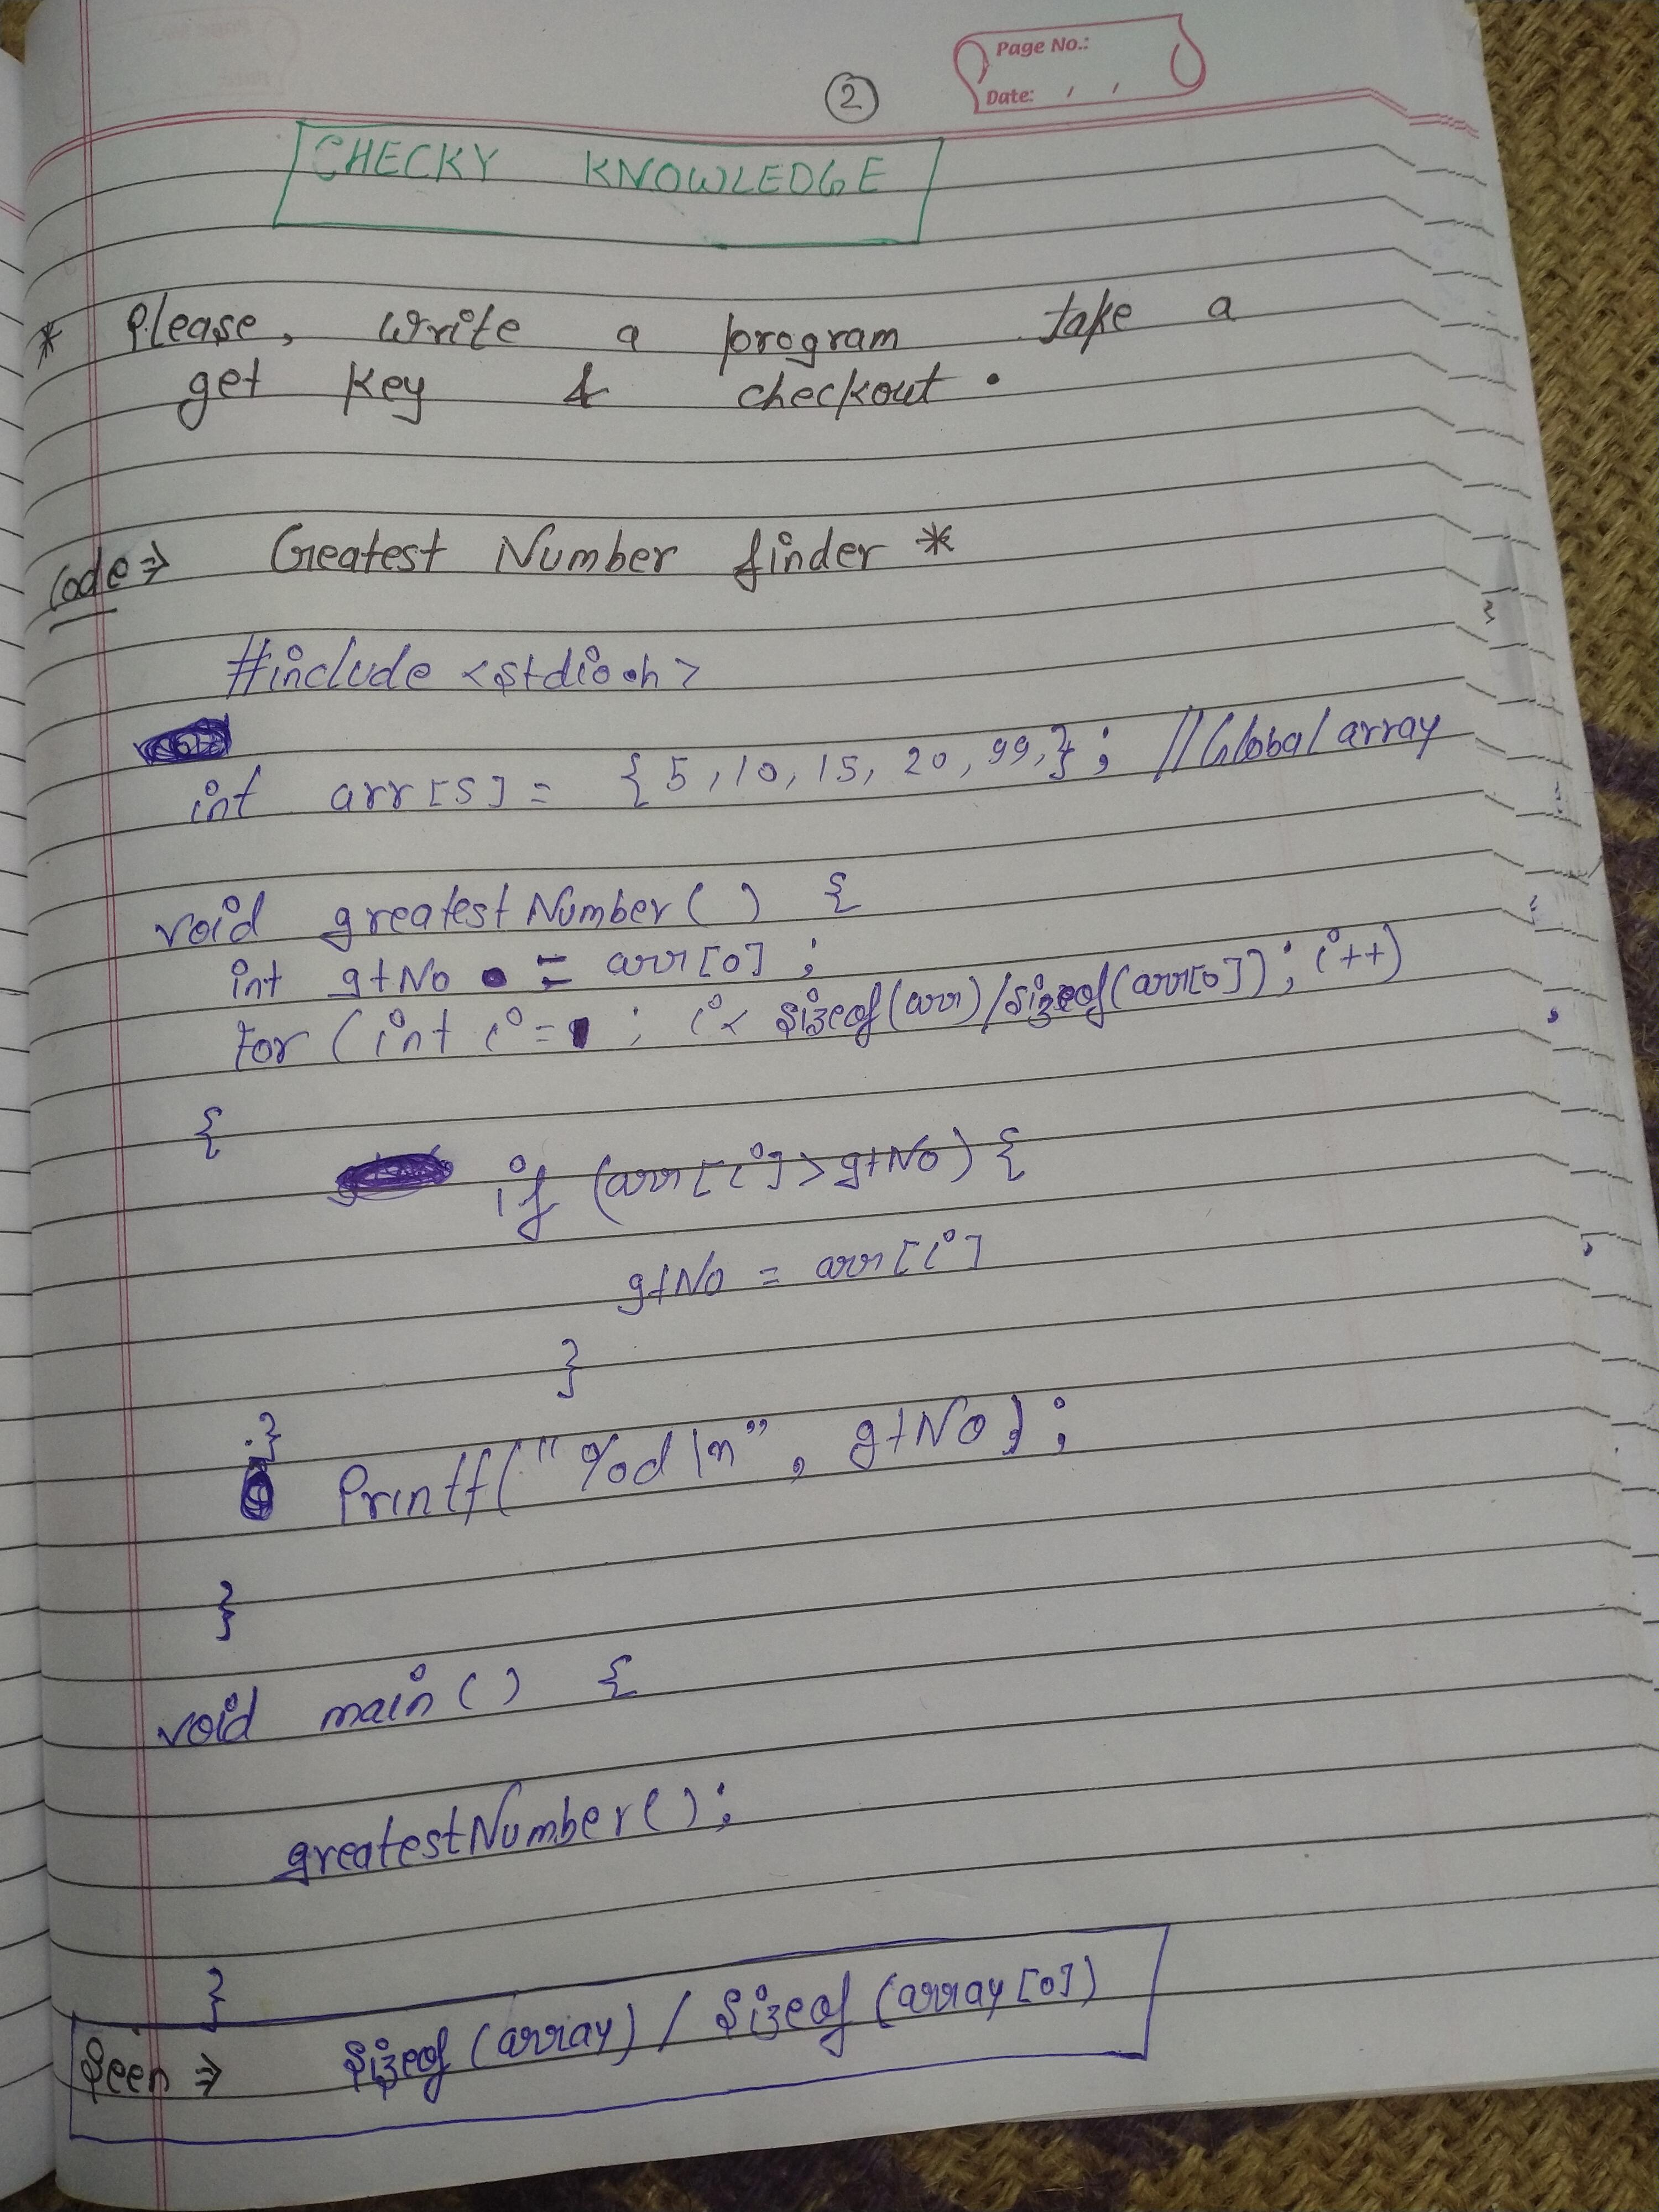 Page No.:
Date: / /
2
CHECKY KNOWLEDGE
* Please, write a program take a
get key & checkout.
Code ⇒ Greatest Number finder *
#include <stdio.h>
int arr[5] = {5, 10, 15, 20, 99,}; //Global array
void greatestNumber() {
int gtNo = arr[0];
For (int i = 1; i < sizeof(arr)/sizeof(arr[0]); i++)
{
if (arr[i] > gtNo) {
gtNo = arr[i]
}
}
Printf("%d\n", gtNo);
}
void main() {
greatestNumber();
}
Seen ⇒ Sizeof(array) / Sizeof(array[0])